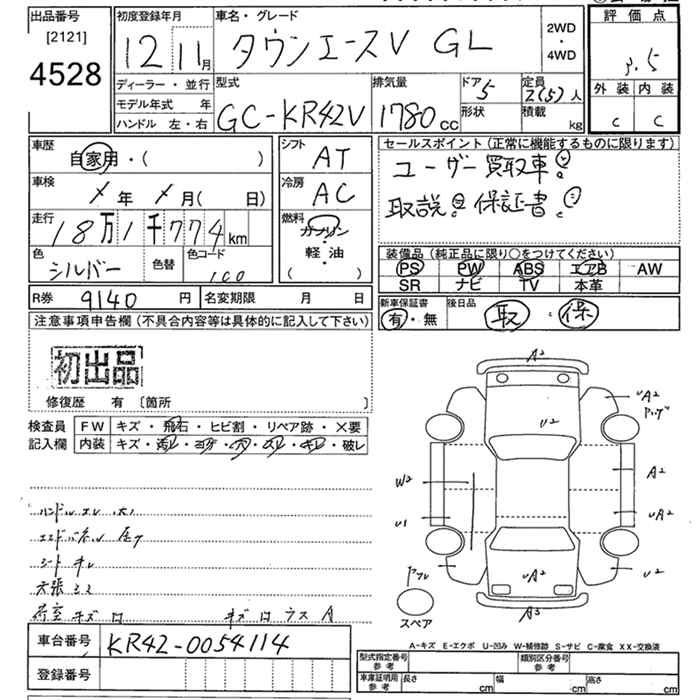 出品番号
[2121]
4528
初度登録年月
12 11月
車名・グレード
タウンエースV GL
2WD
・
4WD
評価点
3.5
外装 内装
C C
ディーラー・並行
モデル年式 年
ハンドル 左・右
型式
GC-KR42V
排気量
1780cc
ドア
5
形状
定員
2(5)人
積載
kg
車歴
自家用・( )
車検
年 月( 日)
走行
18万1千774km
色
シルバー
色替
色コード
100
シフト
AT
冷房
AC
燃料
ガソリン
・
軽油
( )
セールスポイント(正常に機能するものに限ります)
ユーザー買取車!
取説! 保証書!
装備品(純正品に限り○をつけてください)
PS PW ABS エアB AW
SR ナビ TV 本革
R券 9140円
名変期限 月 日
新車保証書
有・無
後日品
取・保
注意事項申告欄(不具合内容等は具体的に記入して下さい)
初出品
修復歴 有〔箇所 〕
検査員
記入欄
FW キズ・飛石・ヒビ割・リペア跡・×要
内装 キズ・汚レ・コゲ・穴・スレ・キレ・破レ
シート キレ
天張
荷室 キズ
A2
U2
W2
U1
A2
UA2
U2
UA2
A3
スペア
A-キズ E-エクボ U-凹み W-補修跡 S-サビ C-腐食 XX-交換済
車台番号 KR42-0054114
登録番号
型式指定番号
参考
類別区分番号
参考
車庫証明用
参考
長さ cm 幅 cm 高さ cm